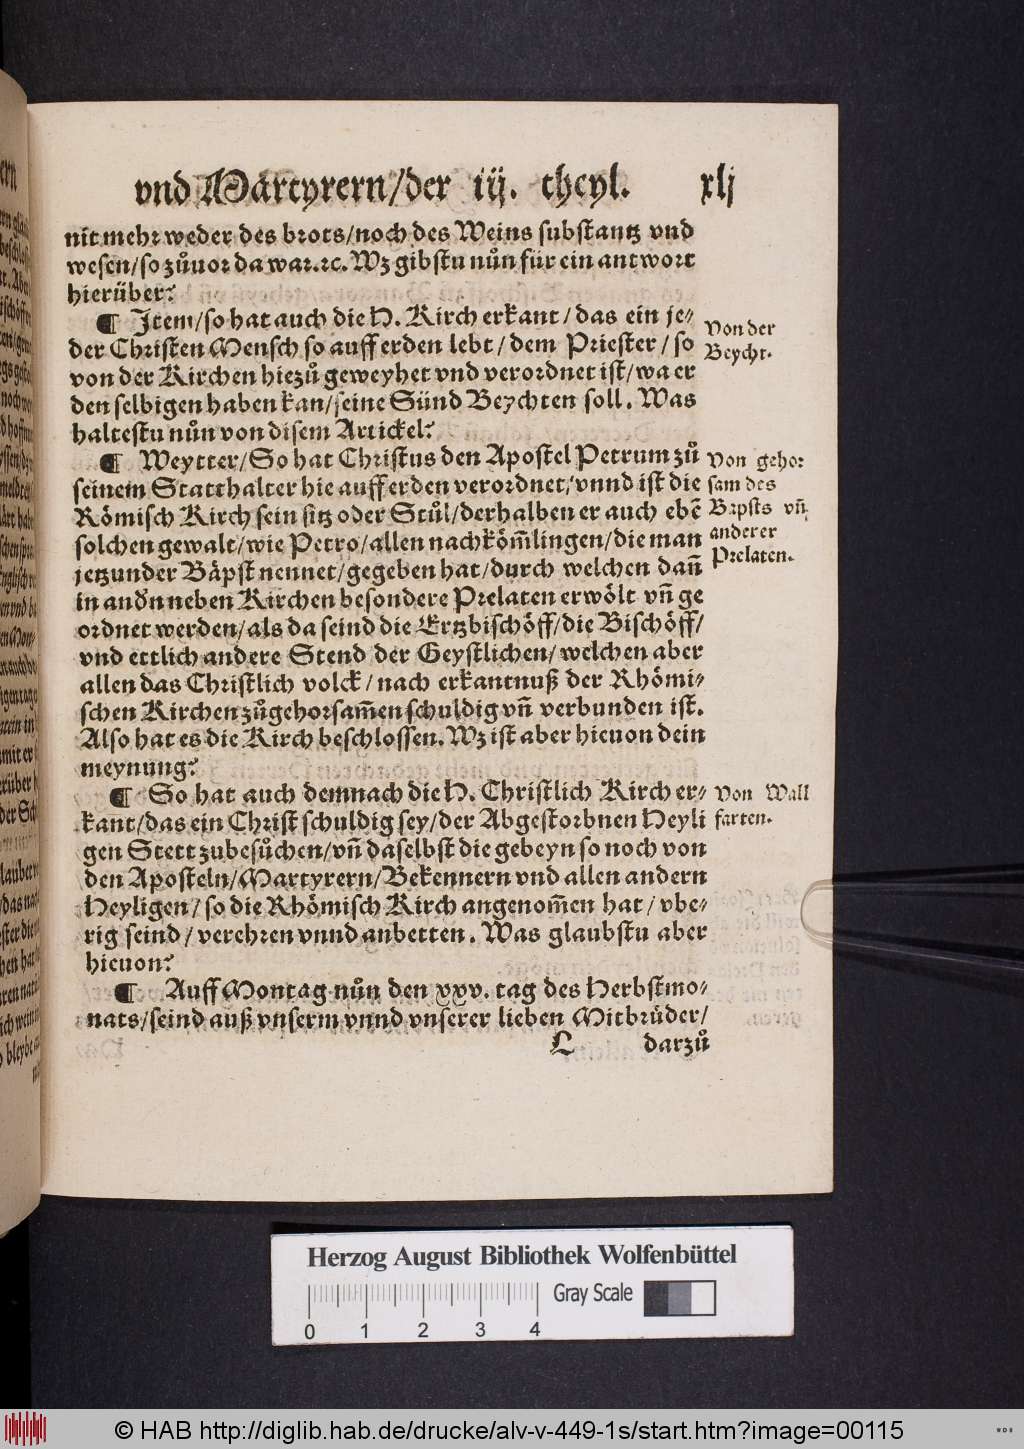 vnd Märtyrern/der iij. theyl. xlj
nit mehr weder des brots/noch des Weins substantz vnd
wesen/so zůuor da war.ꝛc. Wz gibstu nůn für ein antwort
hierüber?
¶ Item/so hat auch die H. Kirch erkant/das ein je⸗
der Christen Mensch so auff erden lebt/dem Priester/so
von der Kirchen hiezů geweyhet vnd verordnet ist/wa er
den selbigen haben kan/seine Sünd Beychten soll. Was
haltestu nůn von disem Artickel?
Von der
Beycht.
¶ Weytter/So hat Christus den Apostel Petrum zů
seinem Statthalter hie auff erden verordnet/vnnd ist die
Römisch Kirch sein sitz oder Stůl/derhalben er auch ebē
solchen gewalt/wie Petro/allen nachköm̃lingen/die man
jetzunder Bäpst nennet/gegeben hat/durch welchen dañ
in andn neben Kirchen besondere Prelaten erwölt vñ ge
ordnet werden/als da seind die Ertzbischöff/die Bischöff/
vnd ettlich andere Stend der Geystlichen/welchen aber
allen das Christlich volck/nach erkantnuß der Rhömi⸗
schen Kirchen zůgehorsam̃en schuldig vñ verbunden ist.
Also hat es die Kirch beschlossen. Wz ist aber hieuon dein
meynung?
Von gehor
sam des
Bapsts vñ
anderer
Prelaten.
¶ So hat auch demnach die H. Christlich Kirch er⸗
kant/das ein Christ schuldig sey/der Abgestorbnen Heyli
gen Stett zubesůchen/vñ daselbst die gebeyn so noch von
den Aposteln/Martyrern/Bekennern vnd allen andern
Heyligen/so die Rhömisch Kirch angenom̃en hat/vbe⸗
rig seind/verehren vnnd anbetten. Was glaubstu aber
hieuon?
Von Wall
farten.
¶ Auff Montag nůn den xxv. tag des Herbstmo⸗
nats/seind auß vnserm vnnd vnserer lieben Mitbrůder/
L darzů
Herzog August Bibliothek Wolfenbüttel
Gray Scale
0 1 2 3 4
© HAB http://diglib.hab.de/drucke/alv-v-449-1s/start.htm?image=00115